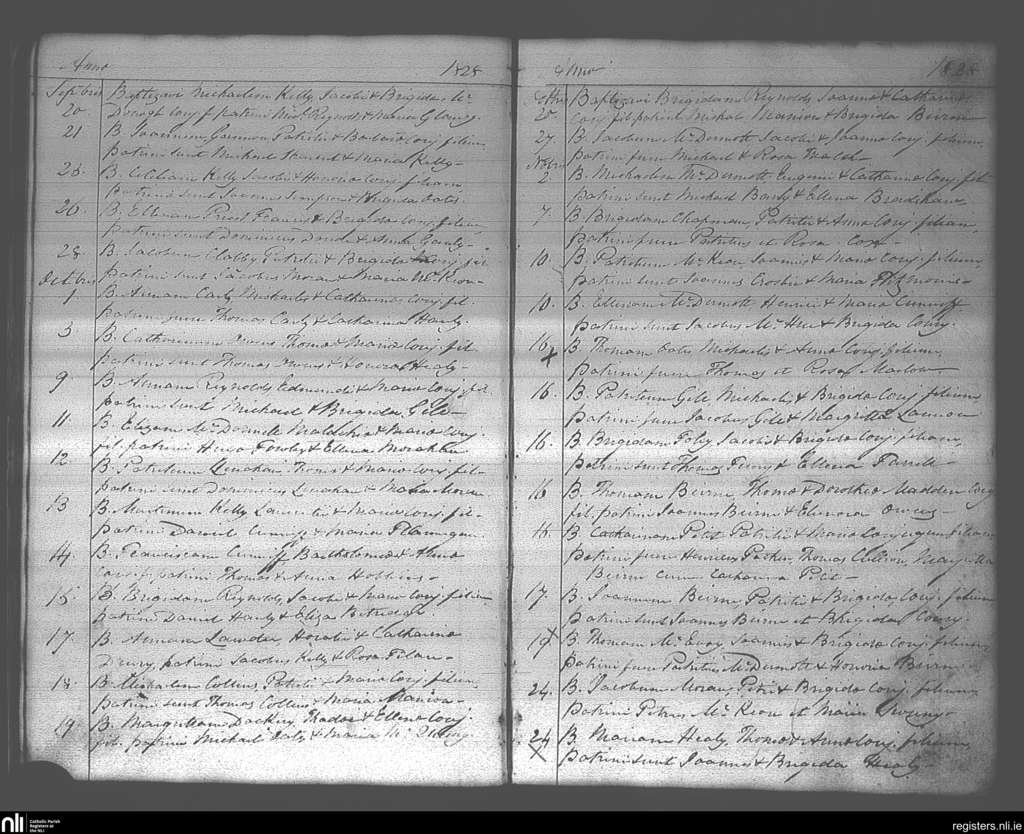 Anno 1828
Septbris Baptizavi Michaelem Kelly Jacobi & Brigida Mc
20. Donogh conj f patrini Michl Reynolds & Maria
21 B. Joannem Gannon Patritii & conj. filium
patrini sunt Michael & Maria Kelly
B. Kelly Jacobi & Honoria conj. filiam
patrini sunt Joannes Simpson & Oates
26. B. Ellenam Francis & Brigida conj. filiam
patrini sunt Dominicus & Anna Ganly
28. B. Jacobum Clabby Patritii & Brigida conj. fil
patrini sunt Jacobus Moran & Maria McKeon
Octbris
1 B. Annam Carly Michaelis & Catharina conj. fil.
patrini fuere Thomas Carly & Catharina Hanly.
3 B. Catharinam Owens Thoma & Maria conj. fil.
patrini sunt Thomas Owens & Honora Healy
9 B. Annam Reynolds Edmundi & Maria conj. fil.
patrini sunt Michael & Brigida Gill
11. B. Elizam McDonnell Malachia & Maria conj.
fil. patrini Hugo Fowley & Ellena
12 B. Patritium Lenahan Thoma & Maria conj. fil.
patrini sunt Dominicus Lenahan & Maria
13 B. Martinum Kelly Laurentii & Maria conj. fil.
patrini Daniel & Maria Flanigan
14. B. Franciscam Cunniff Bartholomei & Anna
conj. f. patrini Thomas & Anna Hobbins
15 B. Brigidam Reynolds Jacobi & Maria conj. filiam
patrini Daniel Hanly & Eliza
17. B. Annam Lawder Horatii & Catharina
Drury, patrini Jacobus Kelly & Rosa
18. B. Michaelem Collins, Patritii & Maria conj. filium
patrini sunt Thomas Collins & Maria
19 B. Margarittam Dockery Thadei & Ellena conj.
fil. patrini Michael Oats & Maria Mc
Anno 1828
Octbris Baptizavi Brigidam Reynolds Joannis & Catharina
25 conj. fil patrini Michael & Brigida Beirne
27. B. Jacobum McDermott Jacobi & Joanna conj. filium,
patrini fuere Michael & Rosa Walsh
Novbris
2. B. Michaelem McDermott Eugenii & Catharina conj. fil.
patrini sunt Michael & Ellena
7. B. Brigidam Chapman, Patritii & Anna conj. filiam,
patrini fuere Patritius et Rosa Cox
10. B. Patritium McKeon Joannis & Maria conj. filium,
patrini sunt Joannes & Maria Fitzmorris
10. B. Ellenam McDermott Henrici & Maria Cunniff
patrini sunt Jacobus McHue & Brigida Conry.
16. B. Thomam Oates Michaelis & Anna conj. filium,
X patrini fuere Thomas et Rosa Marlow
16. B. Patritium Gill Michaelis & Brigida conj. filium
patrini fuere Jacobus Gill & Margritta
16. B. Brigidam Foley Jacobi & Brigida conj. filiam,
patrini sunt Thomas & Ellena Farrell
16 B. Thomam Beirne Thoma & Dorothea Madden conj
fil. patrini Joannes Beirne & Elenora Owens
16. B. Catharinam Petit Patritii & Maria conjugum filiam
patrini fuere Henricus Thomas Cullion, Margritta
Beirne cum Catharina Petit
17. B. Joannem Beirne, Patritii & Brigida conj. filium
patrini sunt Joannes Beirne et Brigida Conry.
19 X B. Thomam McEvoy Joannis & Brigida conj. filium,
patrini fuere Patritius McDermott & Honoria Beirne
24. B. Jacobum Moran, Petri & Brigida conj. filium,
patrini Petrus McKeon et Maria
24 B. Mariam Healy, Thoma & Anna conj. filiam,
X patrini sunt Joannes & Brigida Healy
nli Catholic Parish
Registers at
the NLI
registers.nli.ie